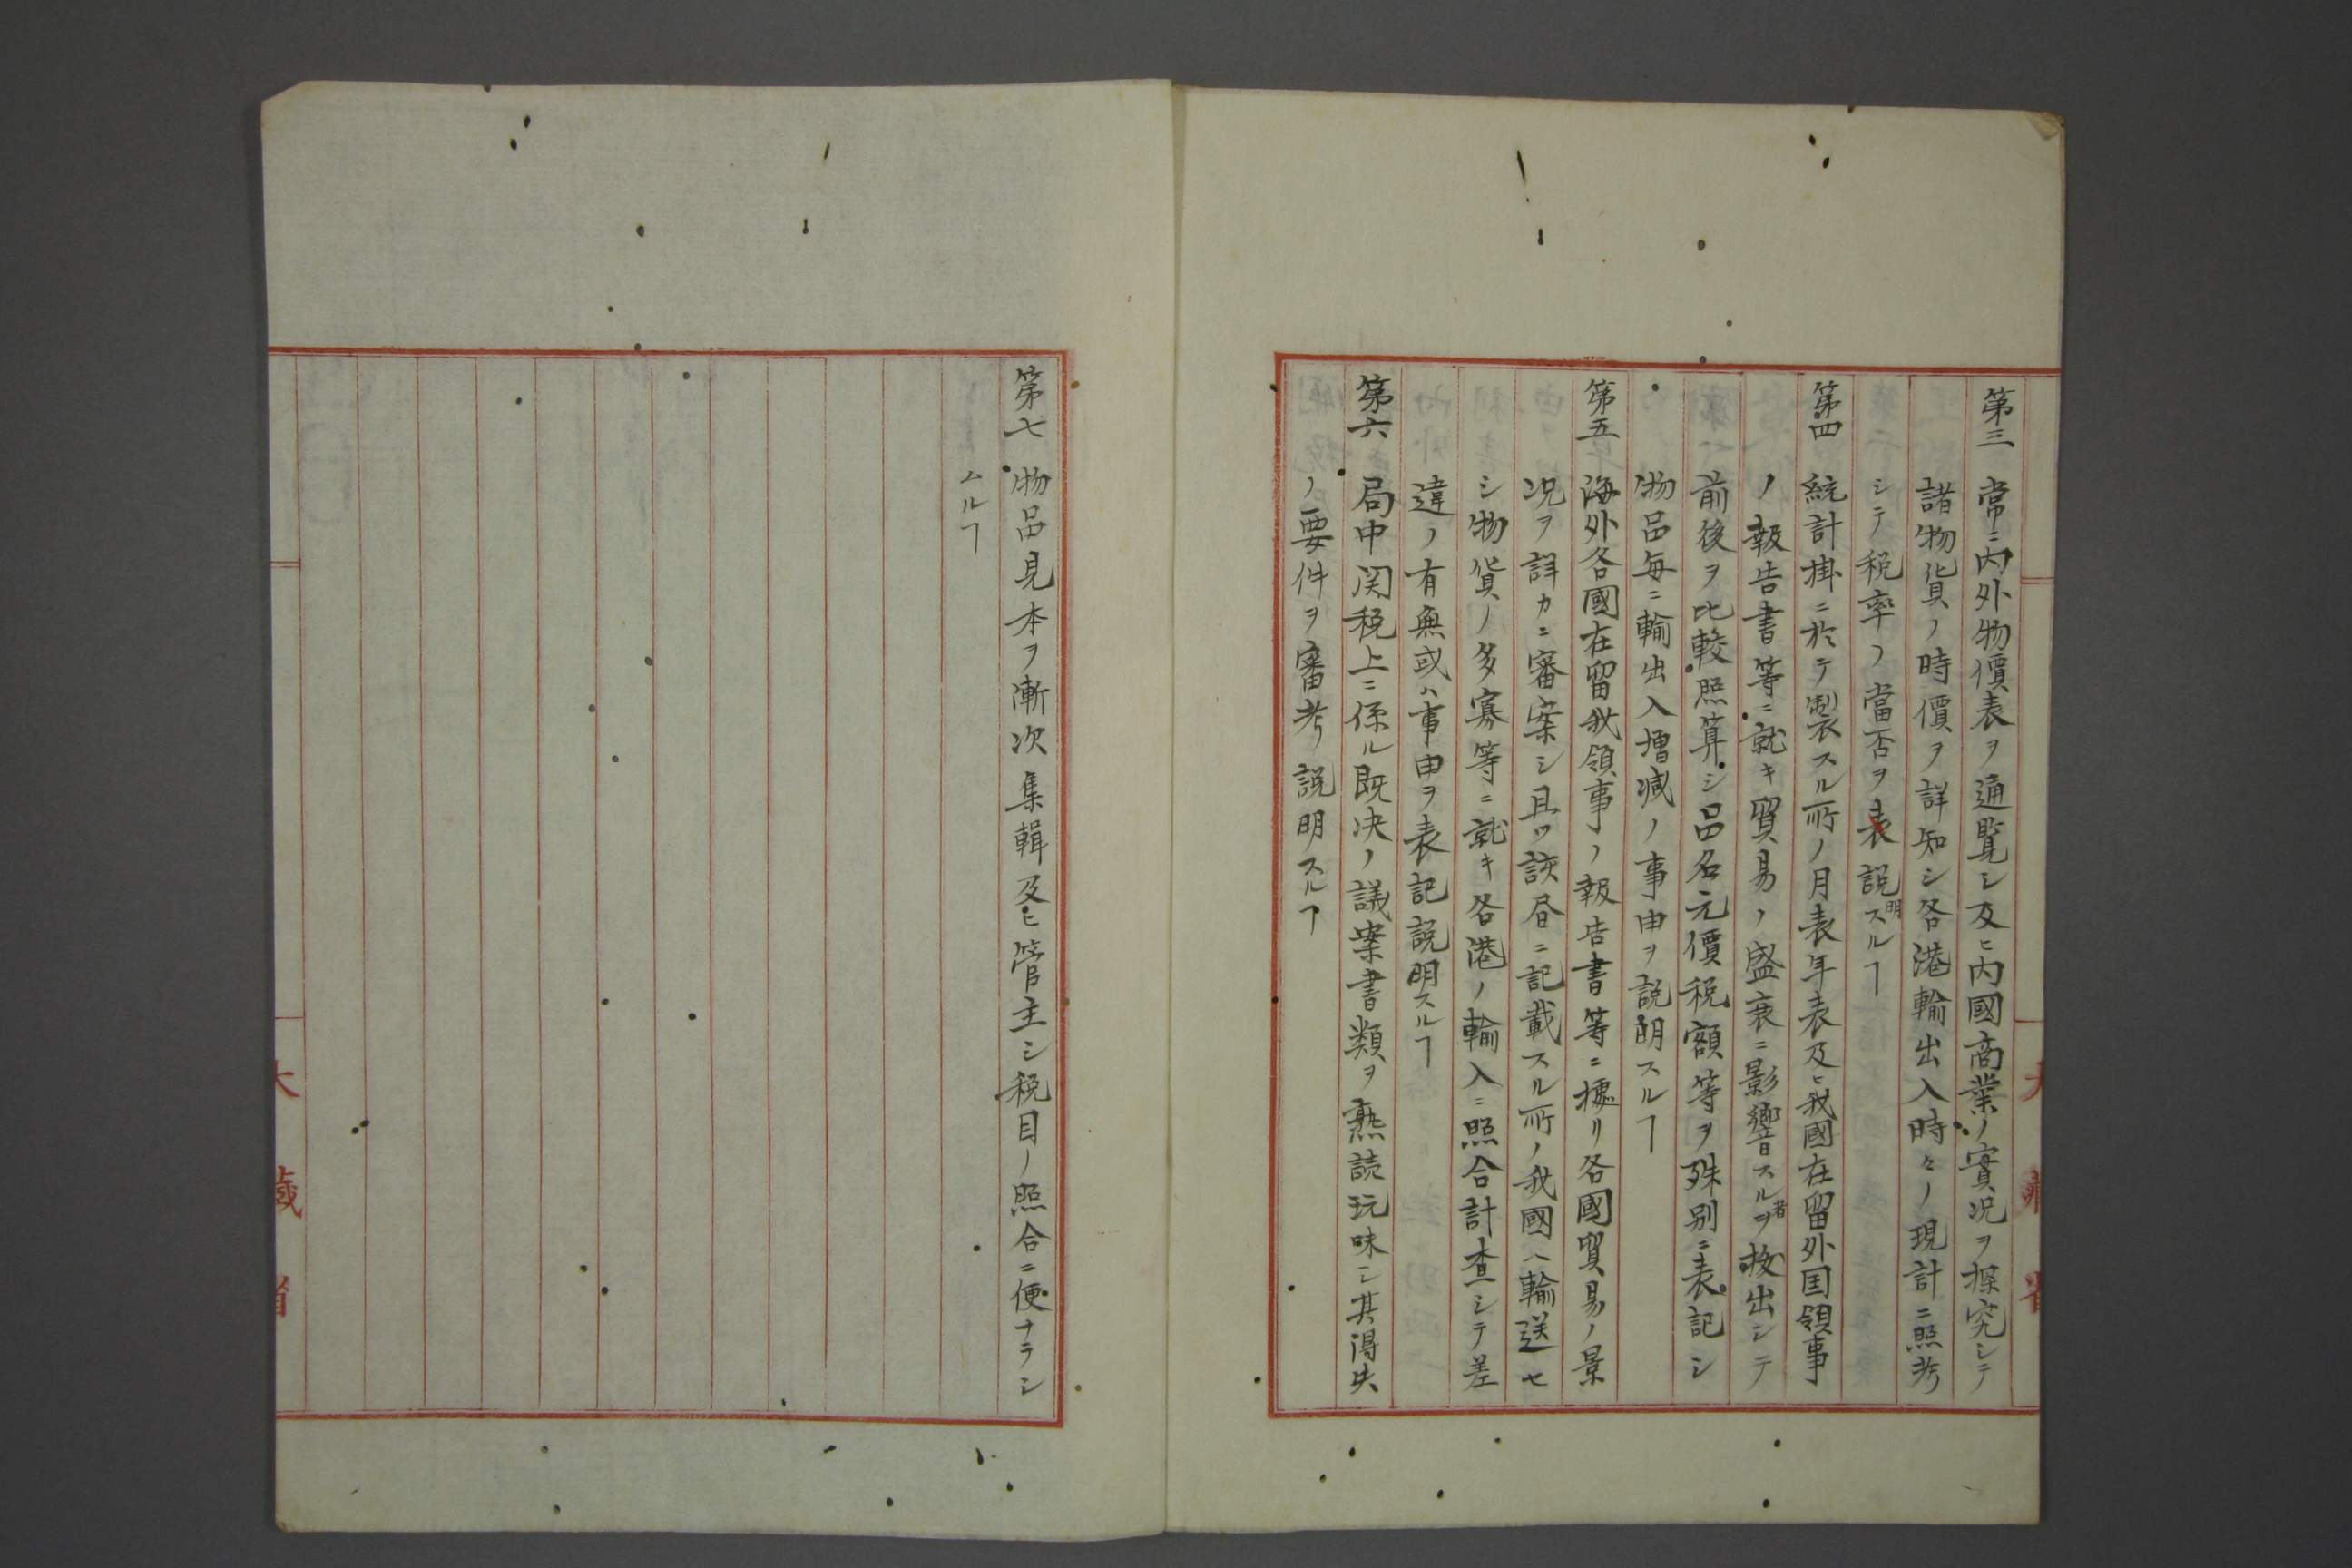 第三 常ニ内外物價表ヲ通覧シ及ヒ内國商業ノ實況ヲ探究シテ
諸物貨ノ時價ヲ詳知シ各港輸出入時々ノ現計ニ照考
シテ税率ノ當否ヲ表説明スルヿ
第四 統計掛ニ於テ製スル所ノ月表年表及ヒ我國在留外国領事
ノ報告書等ニ就キ貿易ノ盛衰ニ影響スル者ヲ拔出シテ
前後ヲ比較照算シ品名元價税額等ヲ殊別ニ表記シ
物品毎ニ輸出入増减ノ事由ヲ説明スルヿ
第五 海外各國在留我領事ノ報告書等ニ據リ各國貿易ノ景
况ヲ詳カニ審案シ且ツ該昼ニ記載スル所ノ我國ヘ輸送セ
シ物貨ノ多寡等ニ就キ各港ノ輸入ニ照合計査シテ差
違ノ有無或ハ事由ヲ表記説明スルヿ
第六 局中関税上ニ係ル既决ノ議案書類ヲ熟読玩味シ其得失
ノ要件ヲ審考説明スルヿ
大藏省
第七 物品見本ヲ漸次集輯及ヒ管主シ税目ノ照合ニ便ナラシ
ムルヿ
大藏省